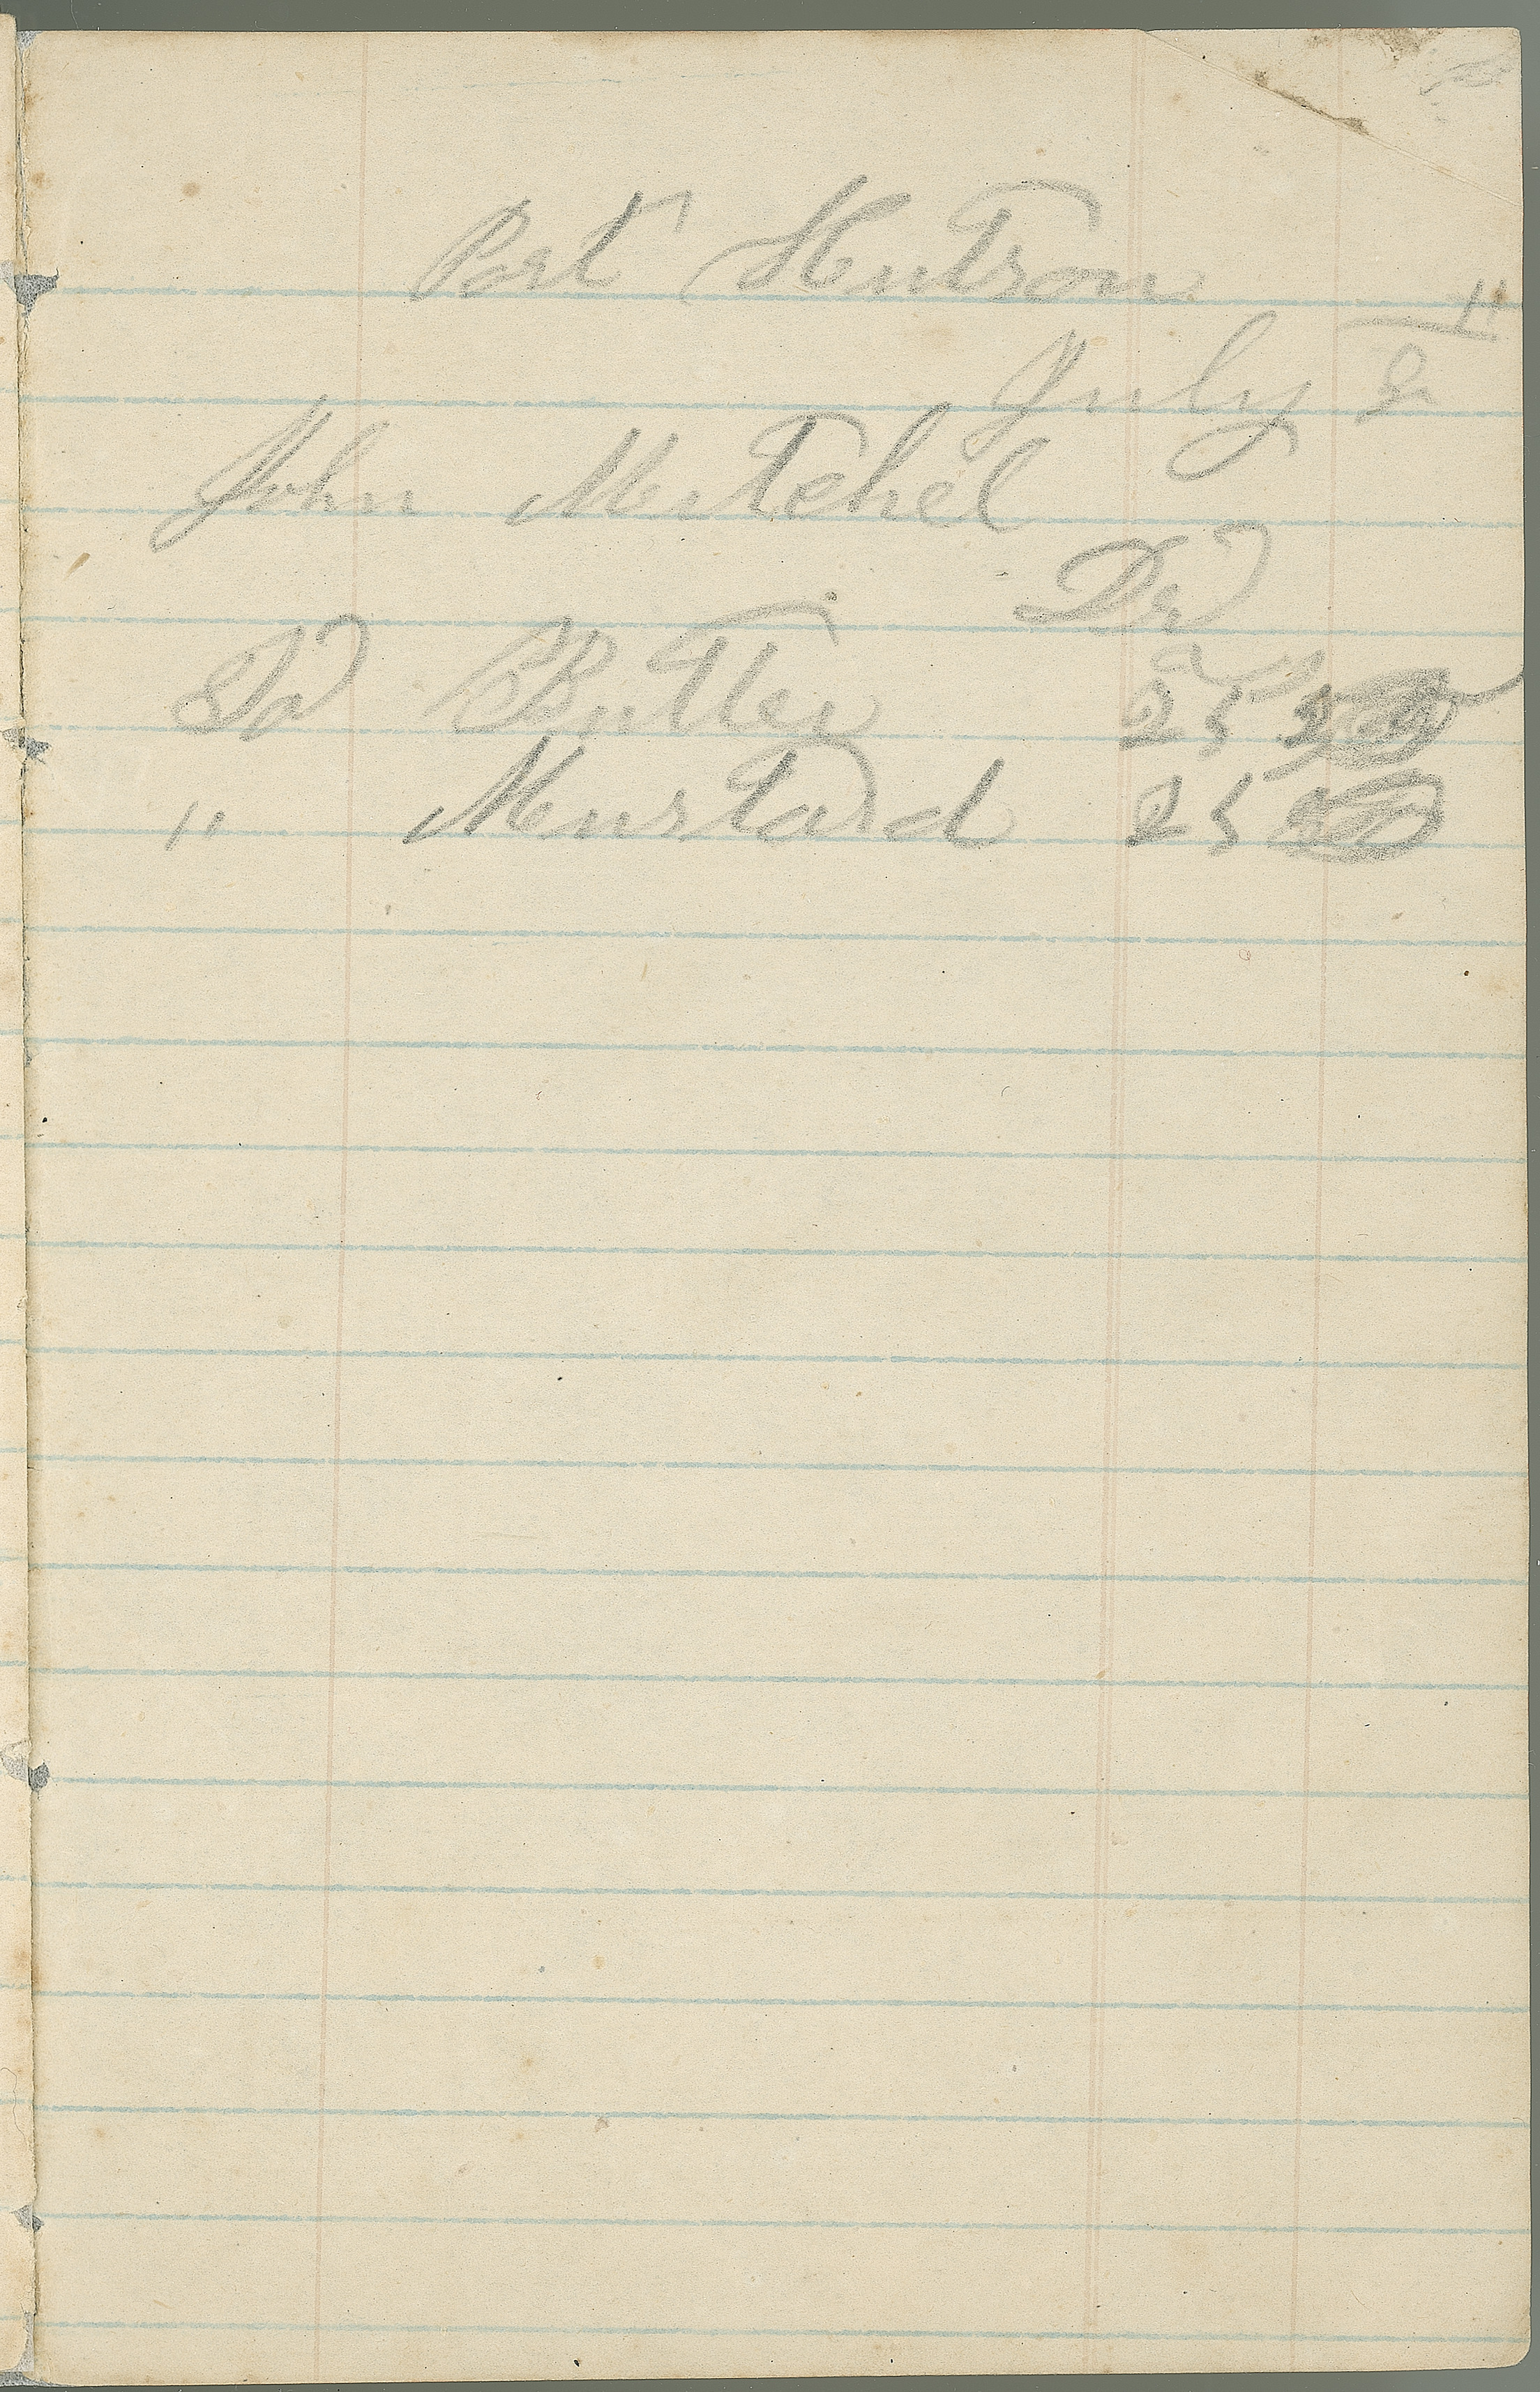 Port Hutson
July 2
John Mitchel
Dr
To Butter 25
" Mustard 25